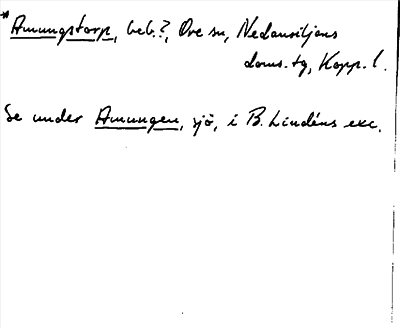 *Amungstorp, beb.?, Ore sn, Nedansiljans
doms.tg, Kopp. l.
Se under Amungen, sjö, i B. Lindéns exc.